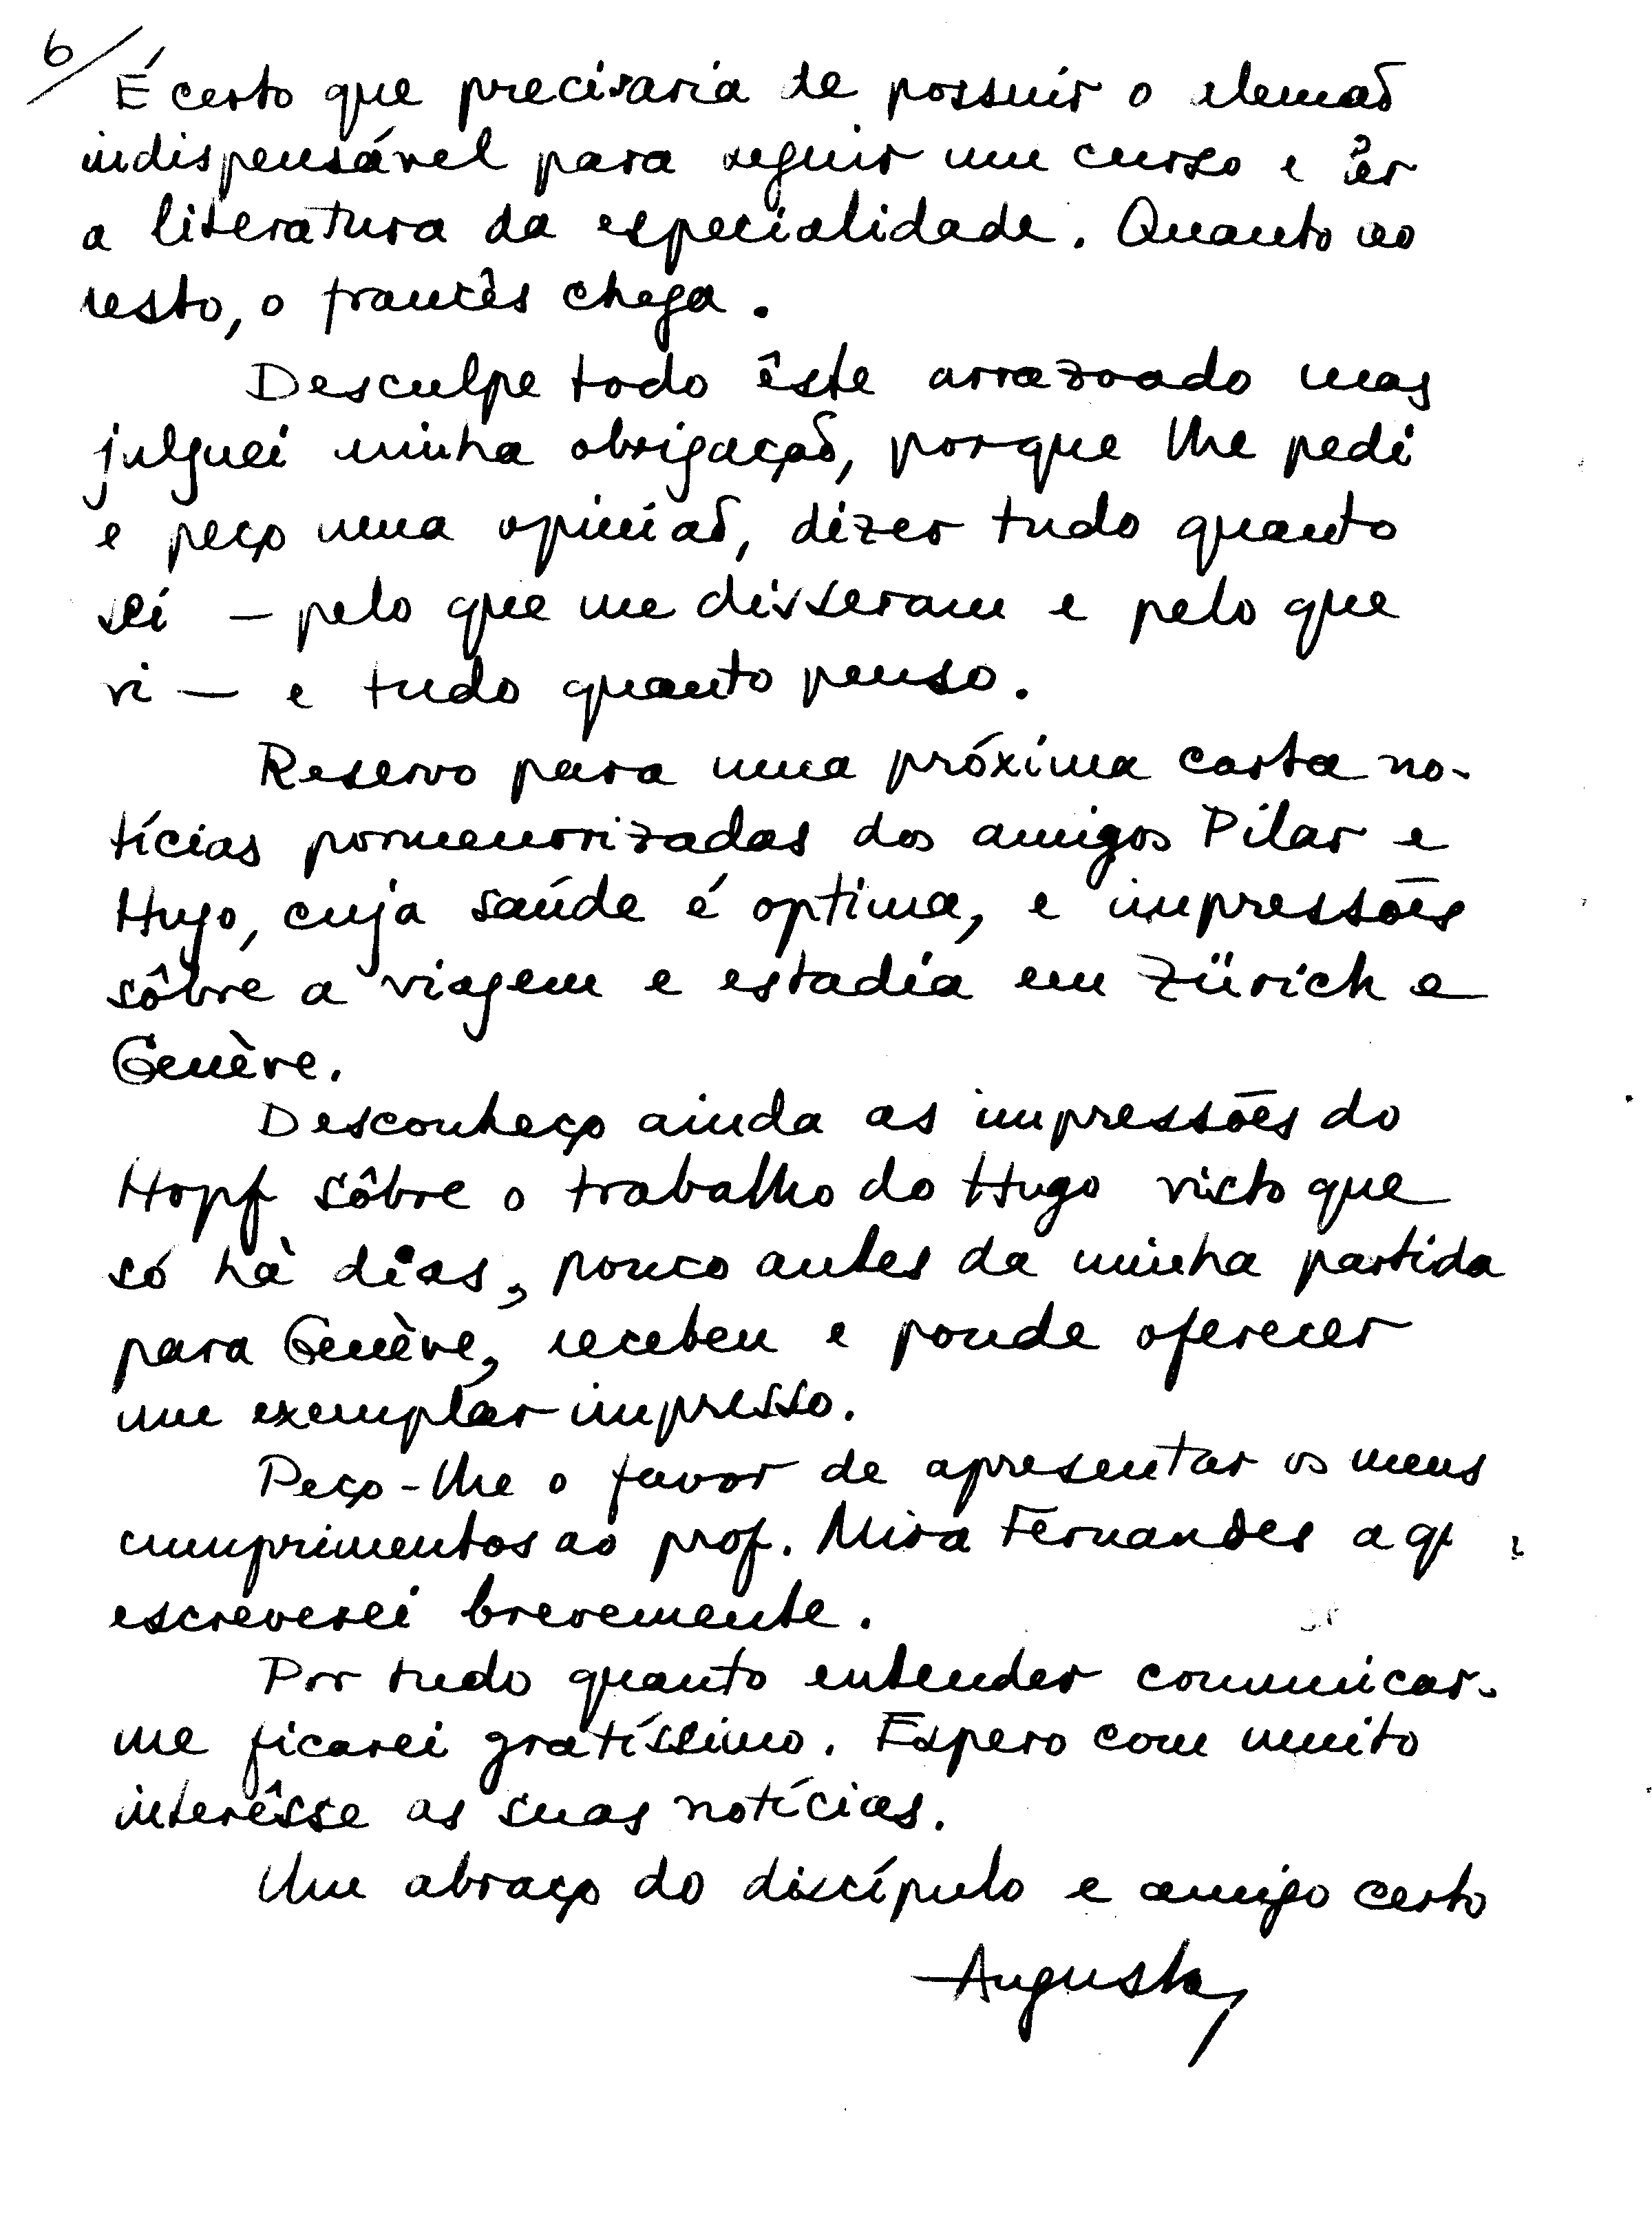 6/
É certo que precisaria de possuir o alemão
indispensável para seguir um curso e lêr
a literatura da especialidade. Quanto ao
resto, o francês chega.
Desculpe todo êste arrazoado mas
julguei minha obrigação, porque lhe pedi
e peço uma opinião, dizer tudo quanto
sei — pelo que me disseram e pelo que
vi — e tudo quanto penso.
Reservo para uma próxima carta no-
tícias pormenorizadas dos amigos Pilar e
Hugo, cuja saúde é optima, e impressões
sôbre a viagem e estadia em Zürich e
Genève.
Desconheço ainda as impressões do
Hopf sôbre o trabalho do Hugo visto que
só hà dias, pouco antes da minha partida
para Genève, recebeu e poude oferecer
um exemplar impresso.
Peço-lhe o favor de apresentar os meus
cumprimentos ao prof. Mira Fernandes a
escreverei brevemente.
Por tudo quanto entender comunicar-
me ficarei gratíssimo. Espero com muito
interêsse as suas notícias.
Um abraço do discípulo e amigo certo
Augusto